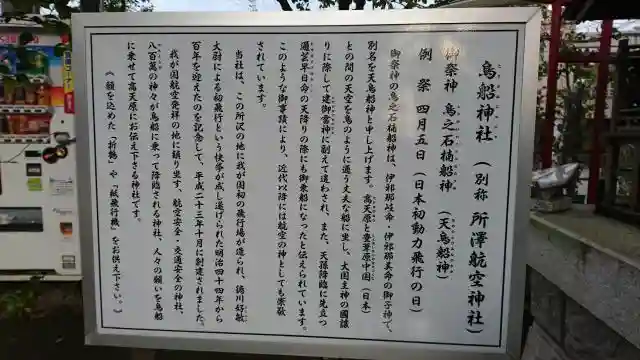 鳥船神社（別称 所澤航空神社）
御祭神 鳥之石楠船神（天鳥船神）
例祭 四月五日（日本初動力飛行の日）
御祭神の鳥之石楠船神は、伊邪那岐命・伊邪那美命の御子神で、
別名を天鳥船神と申し上げます。高天原と葦原中国（日本）
との間の天空を鳥のように通う丈夫な船に坐し、大国主神の国譲
りに際して建御雷神に副えて遣わされ、また、天孫降臨に先立つ
邇芸早日命の天降りの際にも御乗船になったと伝えられています。
このような御事績により、近代以降には航空の神としても崇敬
されています。
当社は、この所沢の地に我が国初の飛行場が造られ、徳川好敏
大尉による初飛行という快挙が成し遂げられた明治四十四年から
百年を迎えたのを記念して、平成二十三年十月に創建されました。
我が国航空発祥の地に鎮り坐す、航空安全・交通安全の神社、
八百萬の神々が鳥船に乗って降臨される神社、人々の願いを鳥船
に乗せて高天原にお伝え下さる神社です。
《願を込めた「折鶴」や「紙飛行機」をお供え下さい。》